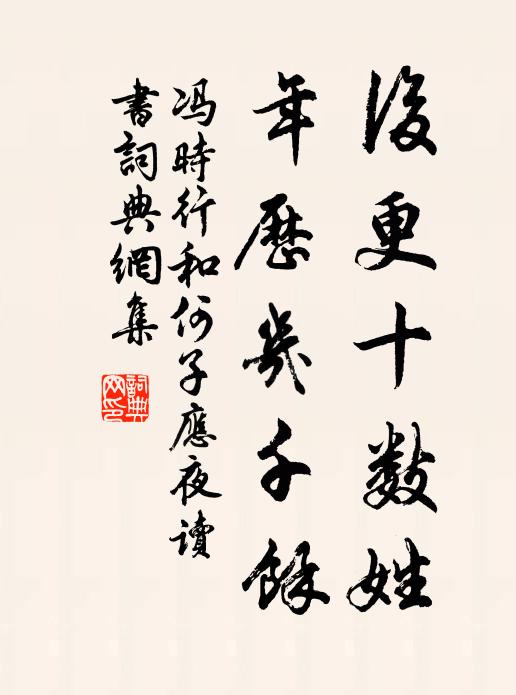 後更十数姓
年歷幾千餘
冯時行和何子應夜讀
書詞典網集
詞典
网印